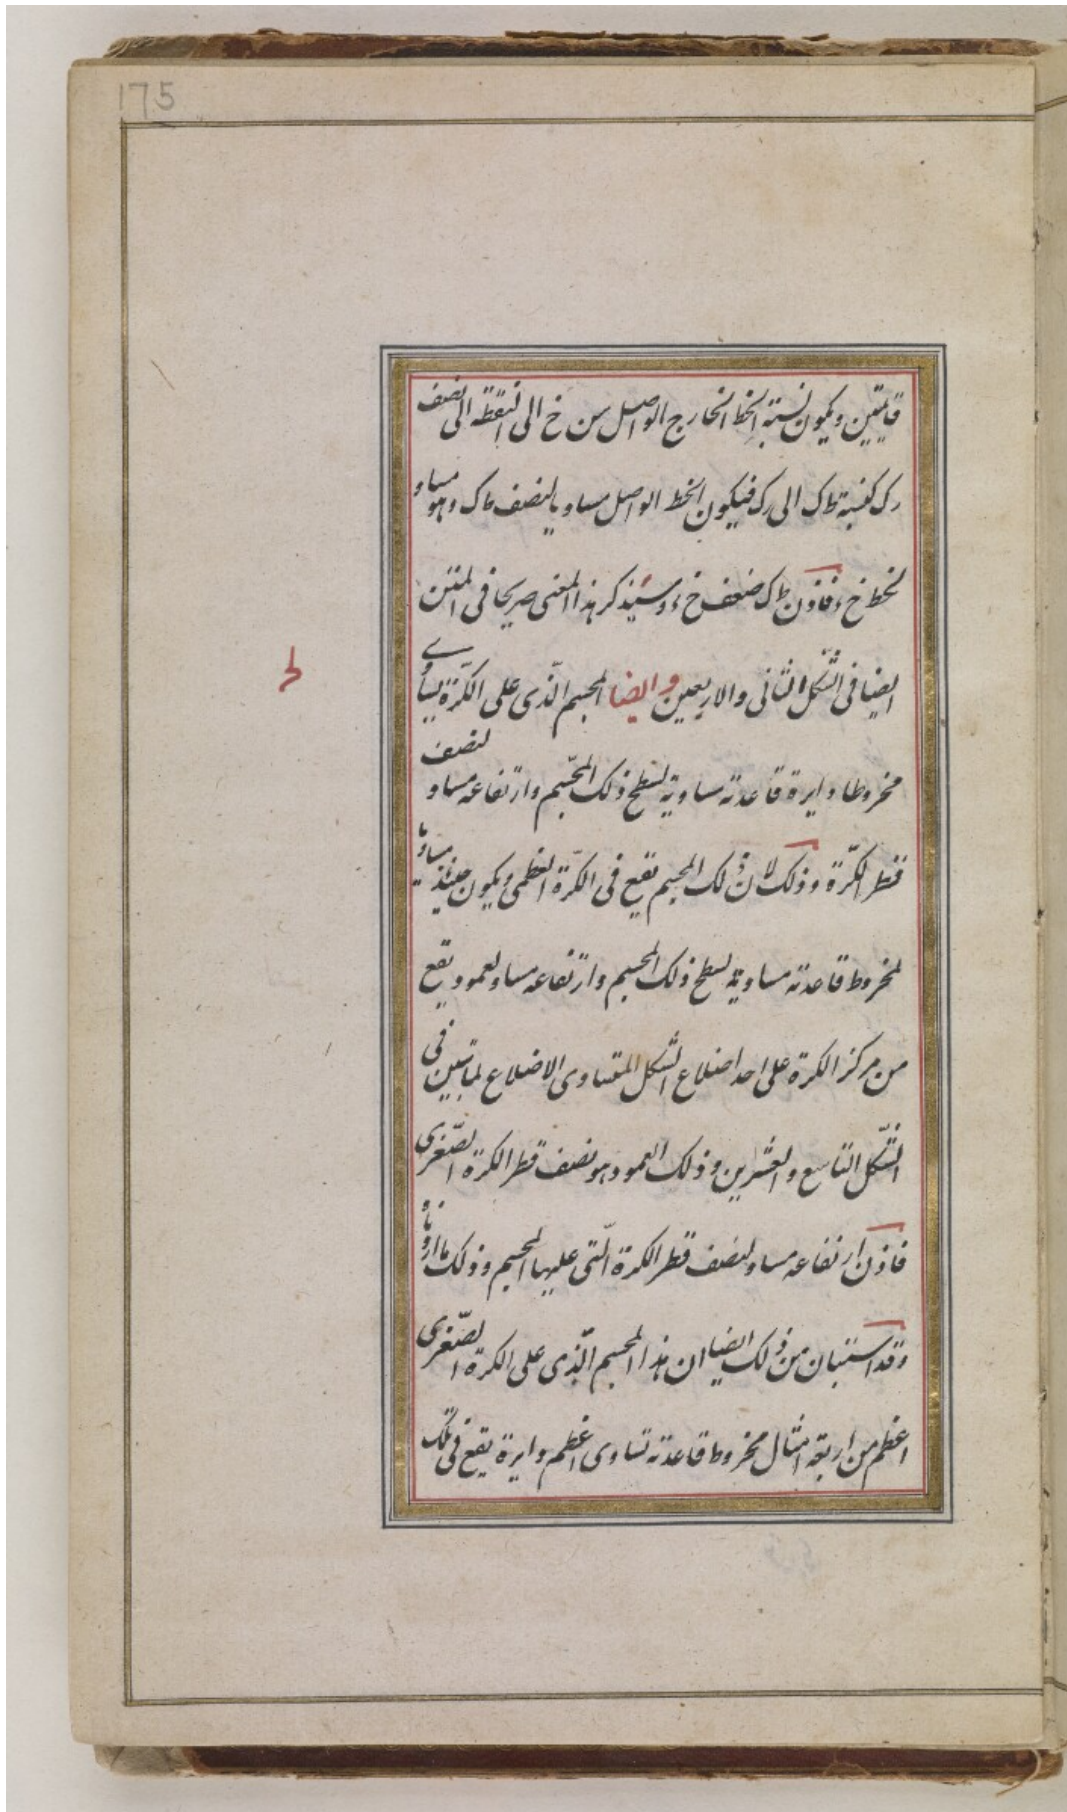 175
قايمتين ويكون نسبة الخط الخارج الواصل من خ الى النقطة الى نصف
رك كنسبة طك الى رك فيكون الخط الواصل مساويا لنصف طك وهو مساو
لخط خ ء فاذن طك ضعف خ ء وسيذكر هذا المعنى صريحا فى المتن
ايضا فى الشكل الثانى والاربعين وايضا المجسم الذى على الكرة يساوى
لد
مخروطا دايرة قاعدته مساوية لسطح ذلك المجسم وارتفاعه مساو لنصف
قطر الكرة وذلك لان ذلك المجسم يقع فى الكرة العظمى ويكون حينئذ مساويا
لمخروط قاعدته مساوية لسطح ذلك المجسم وارتفاعه مساو لعمود يقع
من مركز الكرة على احد اضلاع الشكل المتساوى الاضلاع لما تبين فى
الشكل التاسع والعشرين وذلك العمود هو نصف قطر الكرة الصغرى
فاذن ارتفاعه مساو لنصف قطر الكرة التى عليها المجسم وذلك ما اردناه
وقد استبان من ذلك ايضا ان هذا المجسم الذى على الكرة الصغرى
اعظم من اربعة امثال مخروط قاعدته تساوى اعظم دايرة يقع فى تلك